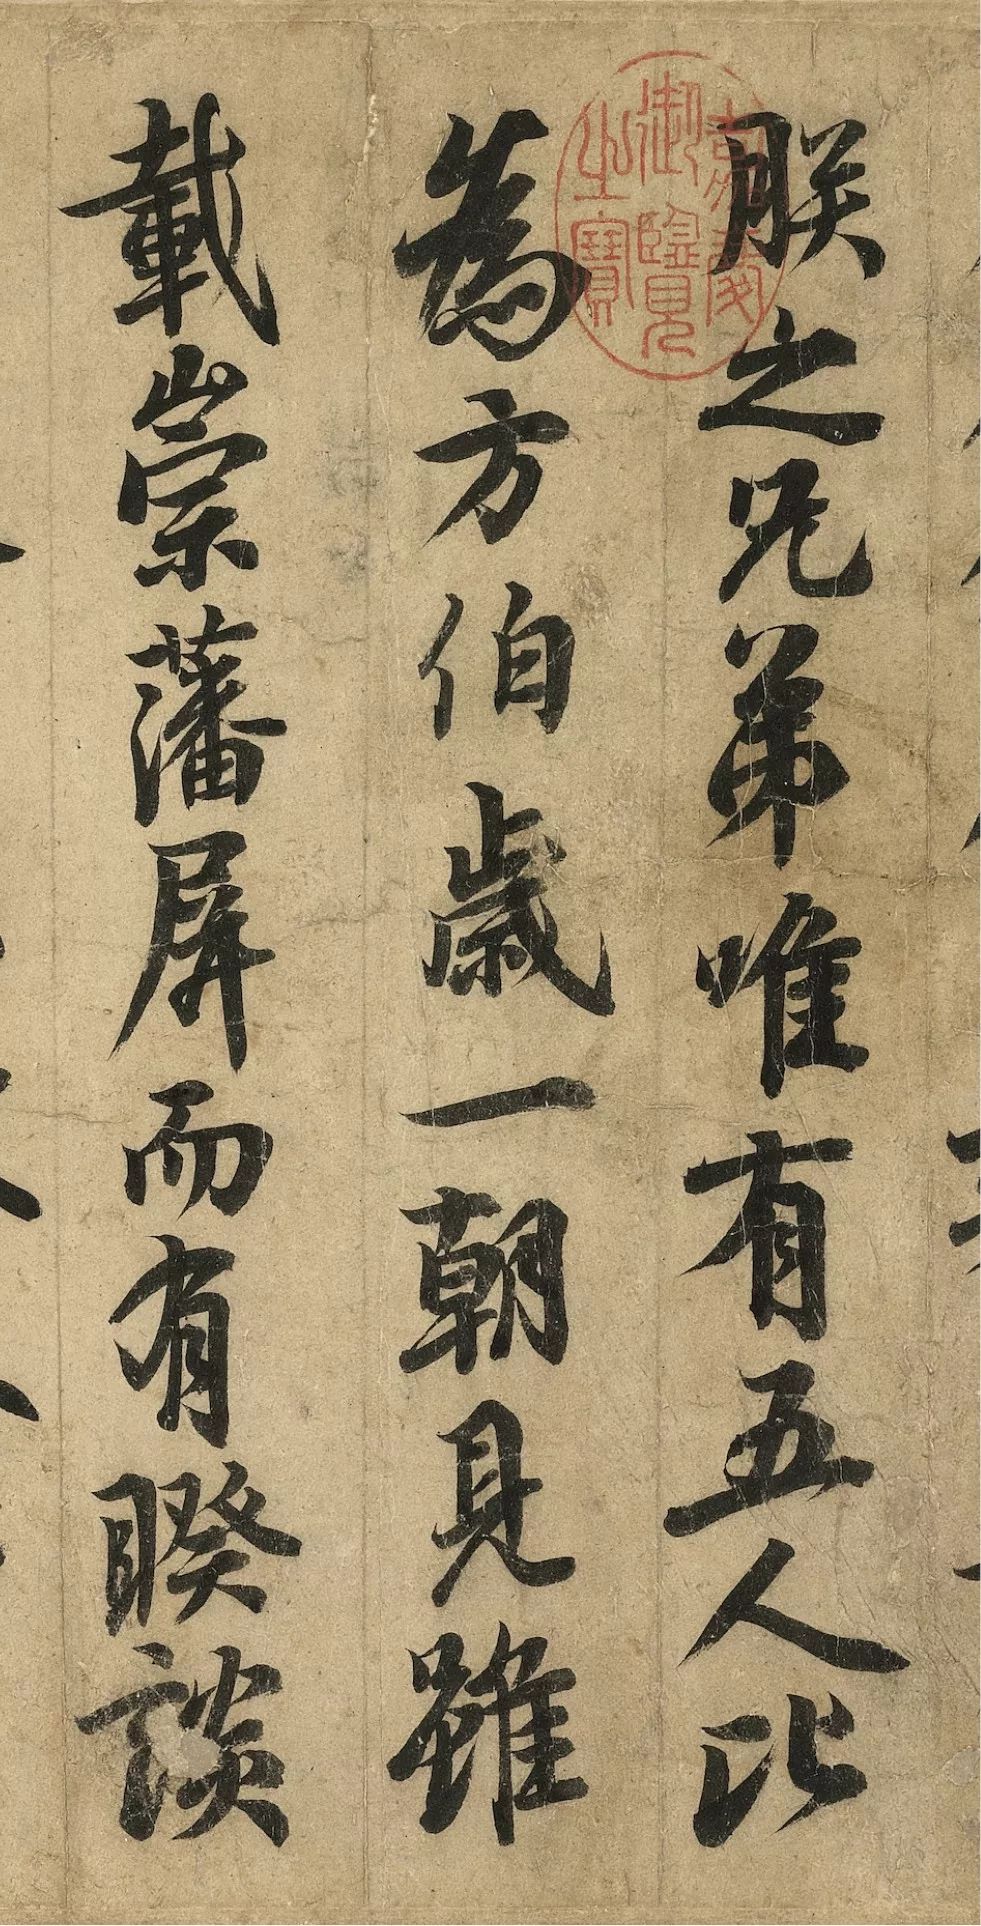 朕之兄弟唯有五人比
為方伯歲一朝見雖
載崇藩屏而有暌談
嘉慶御覽之寶